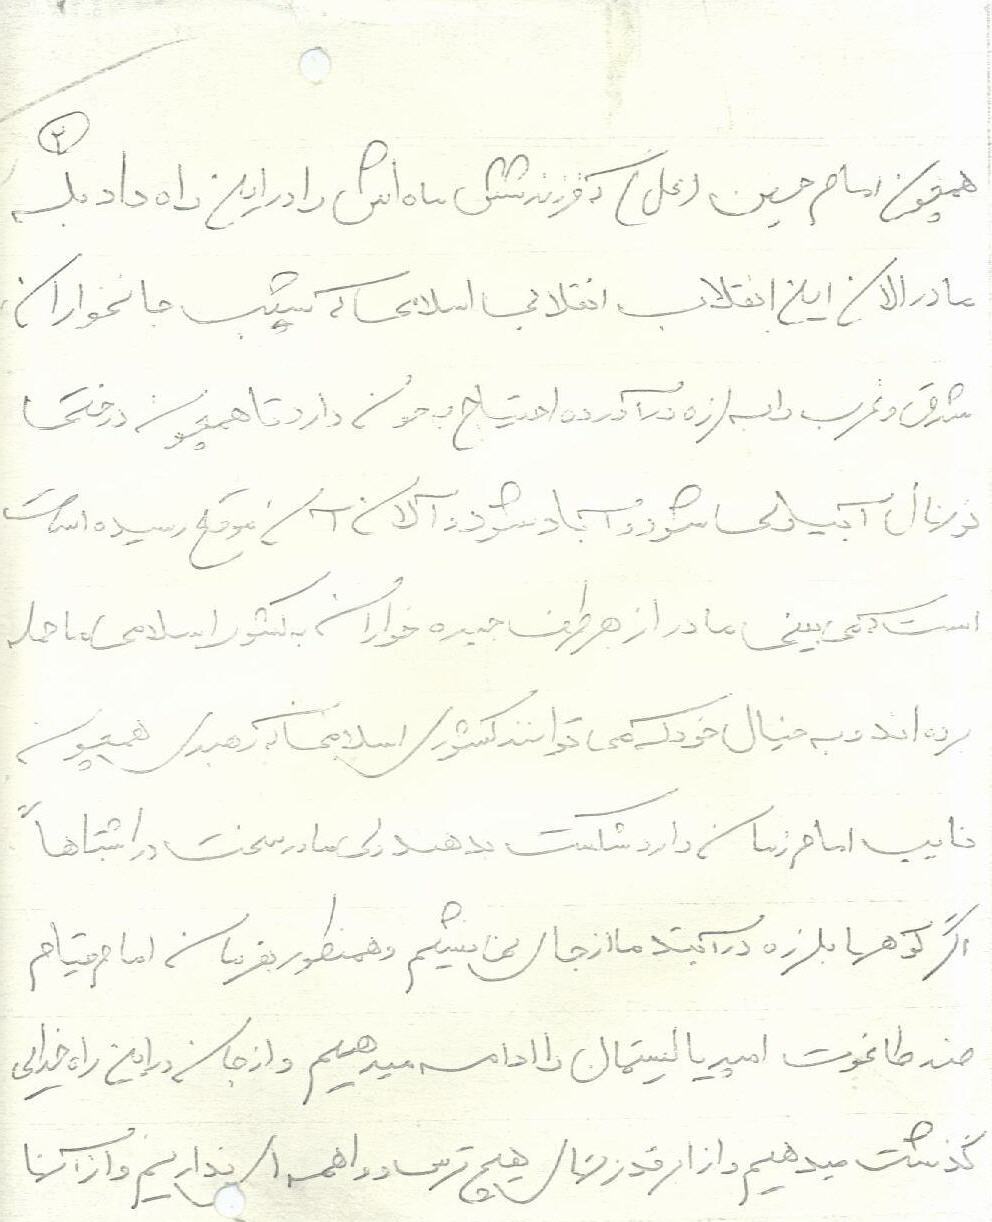 ۲
همچون امام حسین (ع) که فرزند شش ماه اش را در این راه داد بلکه
مادر الان این انقلاب انقلابی اسلامی که پشت جانخواران
شرق و غرب را به لرزه درآورده احتیاج به خون دارد تا همچون درختی
نونهال آبیاری شود و آباد شود و آلان آن موقع رسیده است
است که می بینی مادر از هر طرف جیره خواران به کشور اسلامی ما حمله
برده اند و به خیال خود که می توانند کشوری اسلامی که رهبری همچون
نایب امام زمان دارد شکست بدهند ولی مادر سخت در اشتباهاً
اگر کوهها بلرزه درآیند ما از جای نمی نیشیم و همنطور بفرمان امام قیام
ضد طاغوت امپریالیستمال را ادامه میدهیم و از جان در این راه خدایی
گذشت میدهیم و از ابرقدرتهای هیچ ترس و واهمه ای نداریم و از آنها